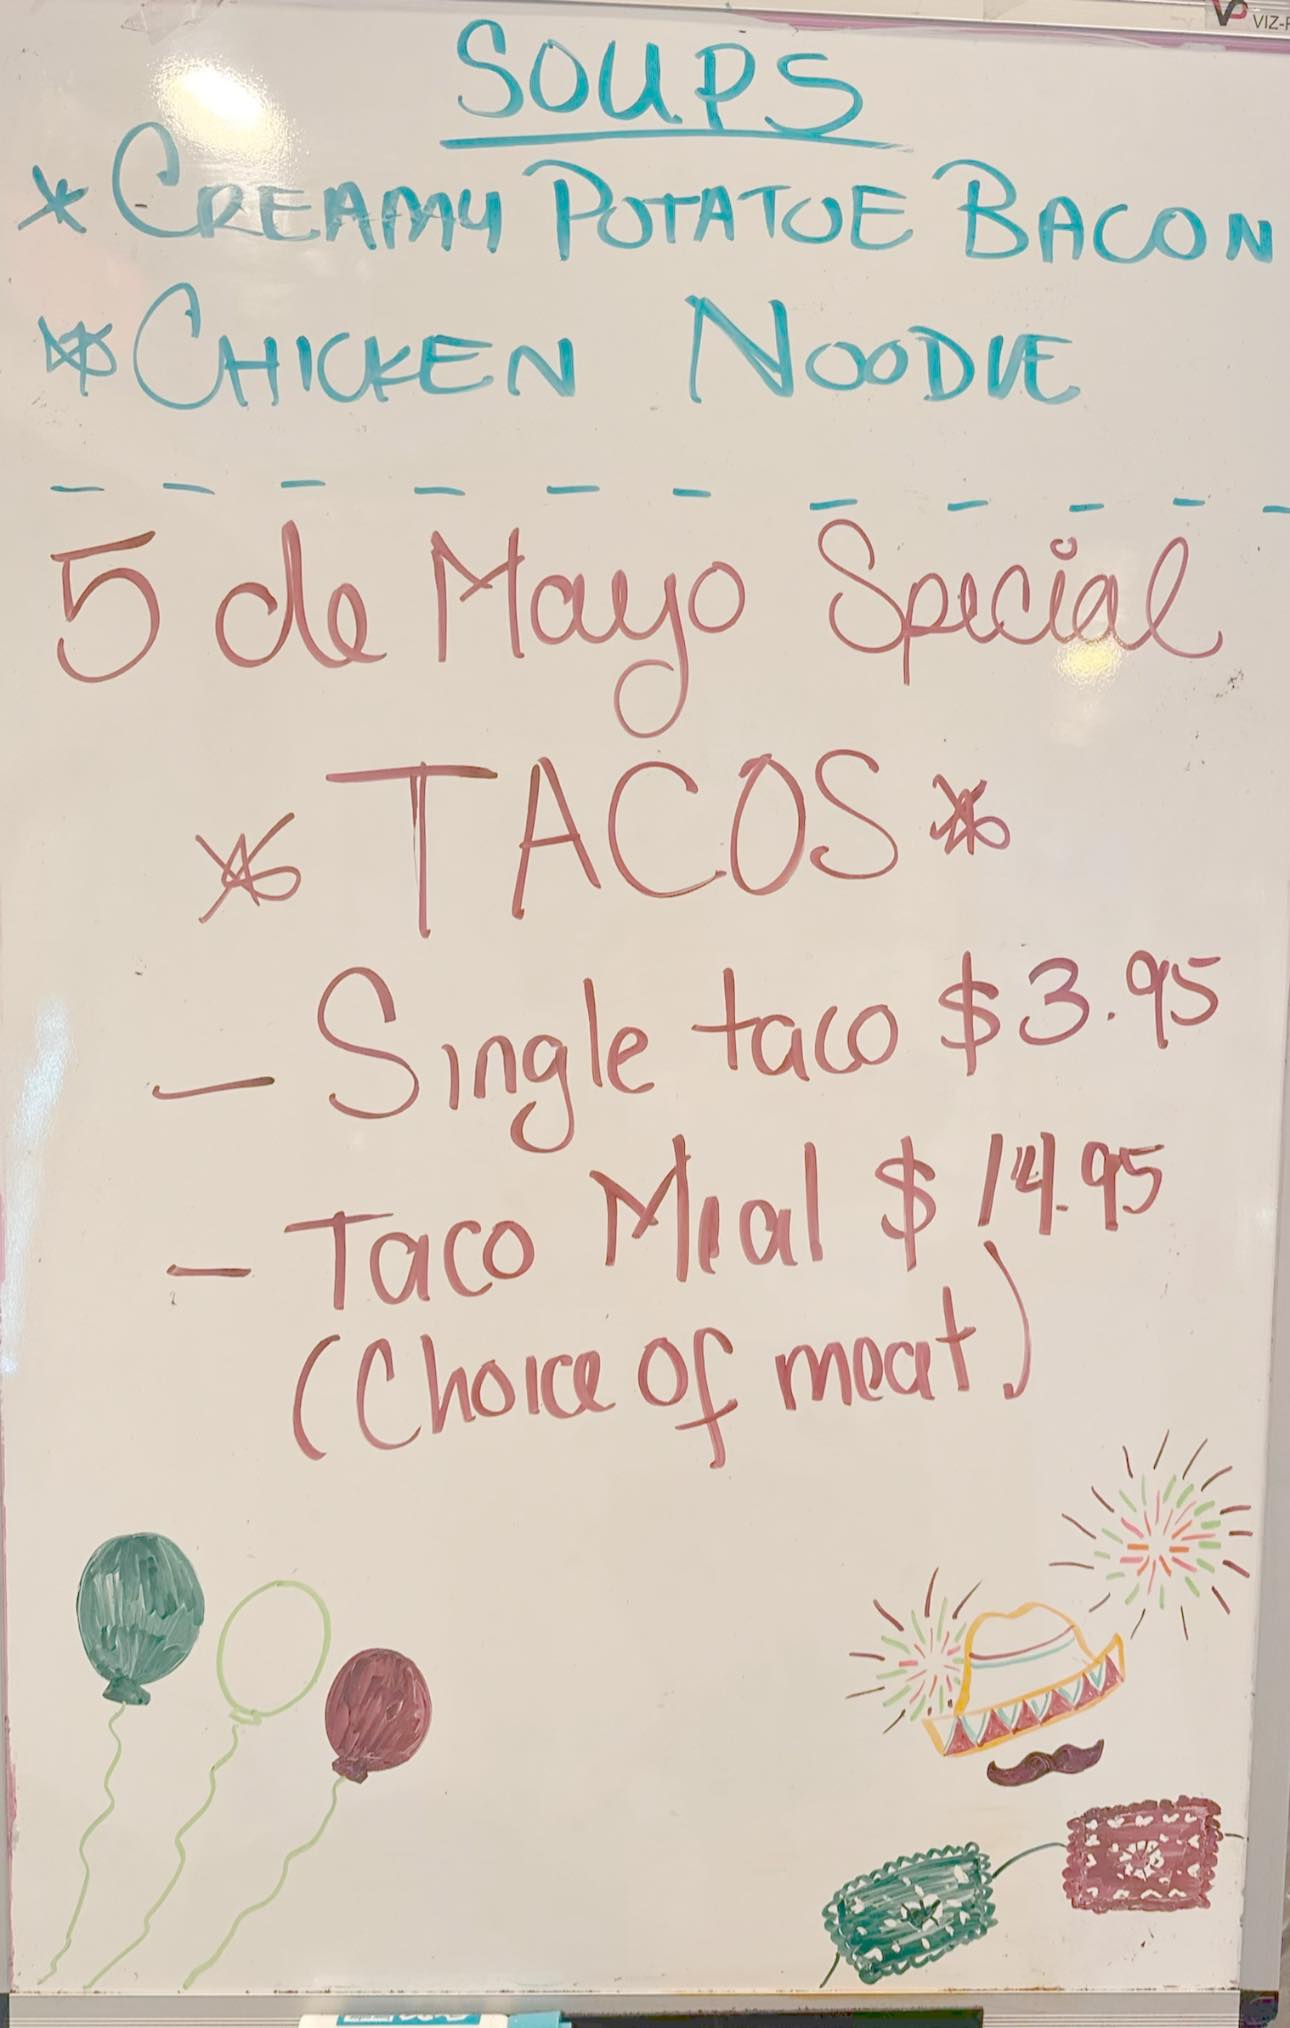 VIZ-P
SOUPS
* CREAMY POTATOE BACON
* CHICKEN NOODLE
5 de Mayo Special
* TACOS *
- Single taco $3.95
- Taco Meal $14.95
(Choice of meat)